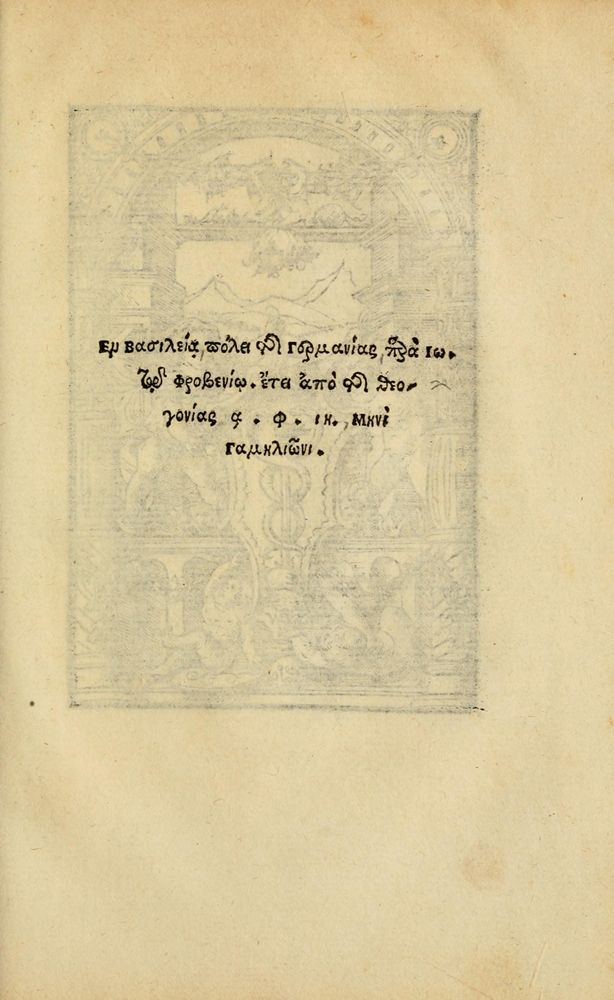 Εν Βασιλείᾳ, πόλει τῆς Γερμανίας, παρὰ Ιω.
τῷ Φροβενίῳ. ἔτει ἀπὸ τῆς θεο-
γονίας α . φ . ιη., μηνὶ
Γαμηλιῶνι.